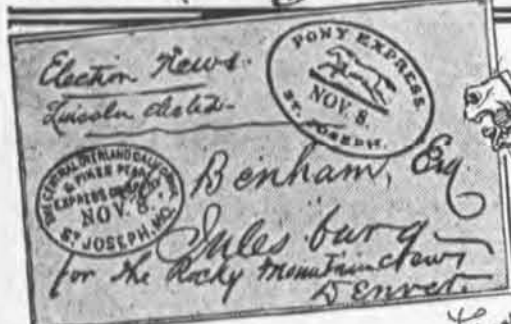 Election News.
Lincoln elected.
PONY EXPRESS.
NOV. 8.
ST. JOSEPH.
THE CENTRAL OVERLAND CALIFORNIA
& PIKES PEAK
EXPRESS COMPANY
NOV. 8.
ST JOSEPH, MO.
Benham, Esq
Julesburg
for the Rocky Mountain News
Denver.